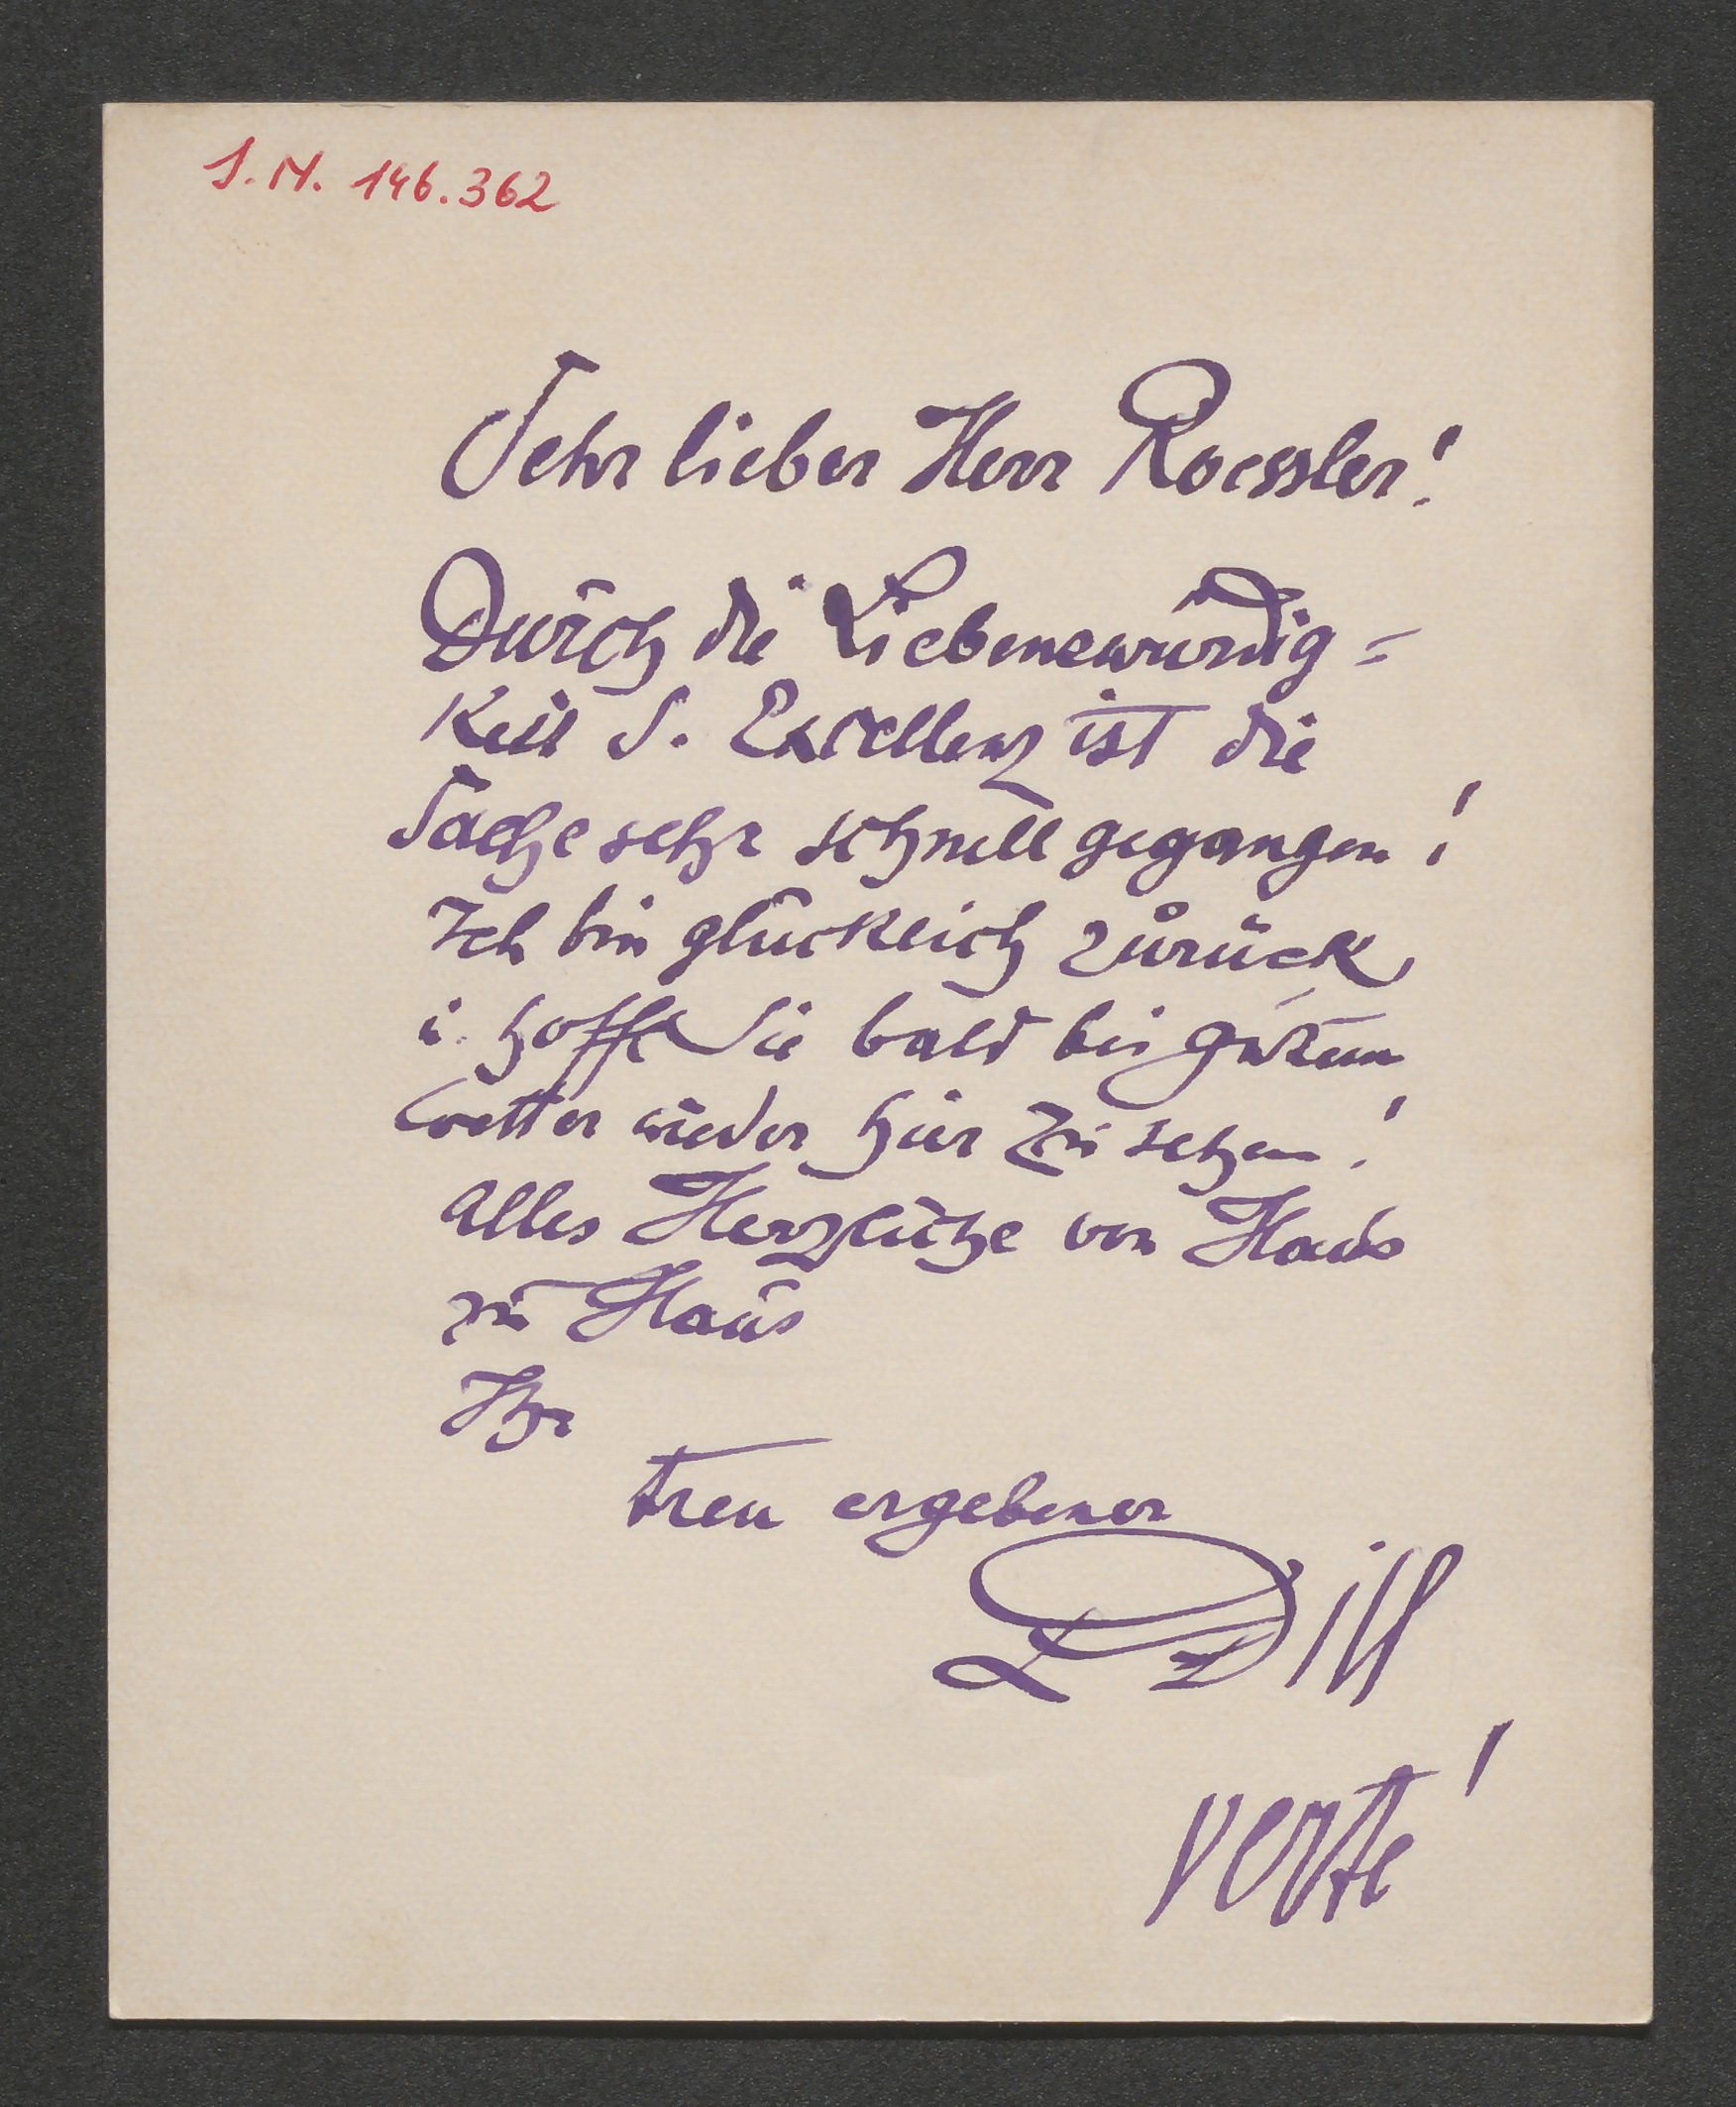 I.N. 146.362
Sehr lieber Herr Roessler!
Durch die Liebenswürdig=
keit S. Excellenz ist die
Sache sehr schnell gegangen!
Ich bin glücklich zurück
u. hoffe Sie bald bei gutem
Wetter wieder hier zu sehen!
Alles Herzliche von Haus
zu Haus
Ihr
treu ergebener
Dill
verte!